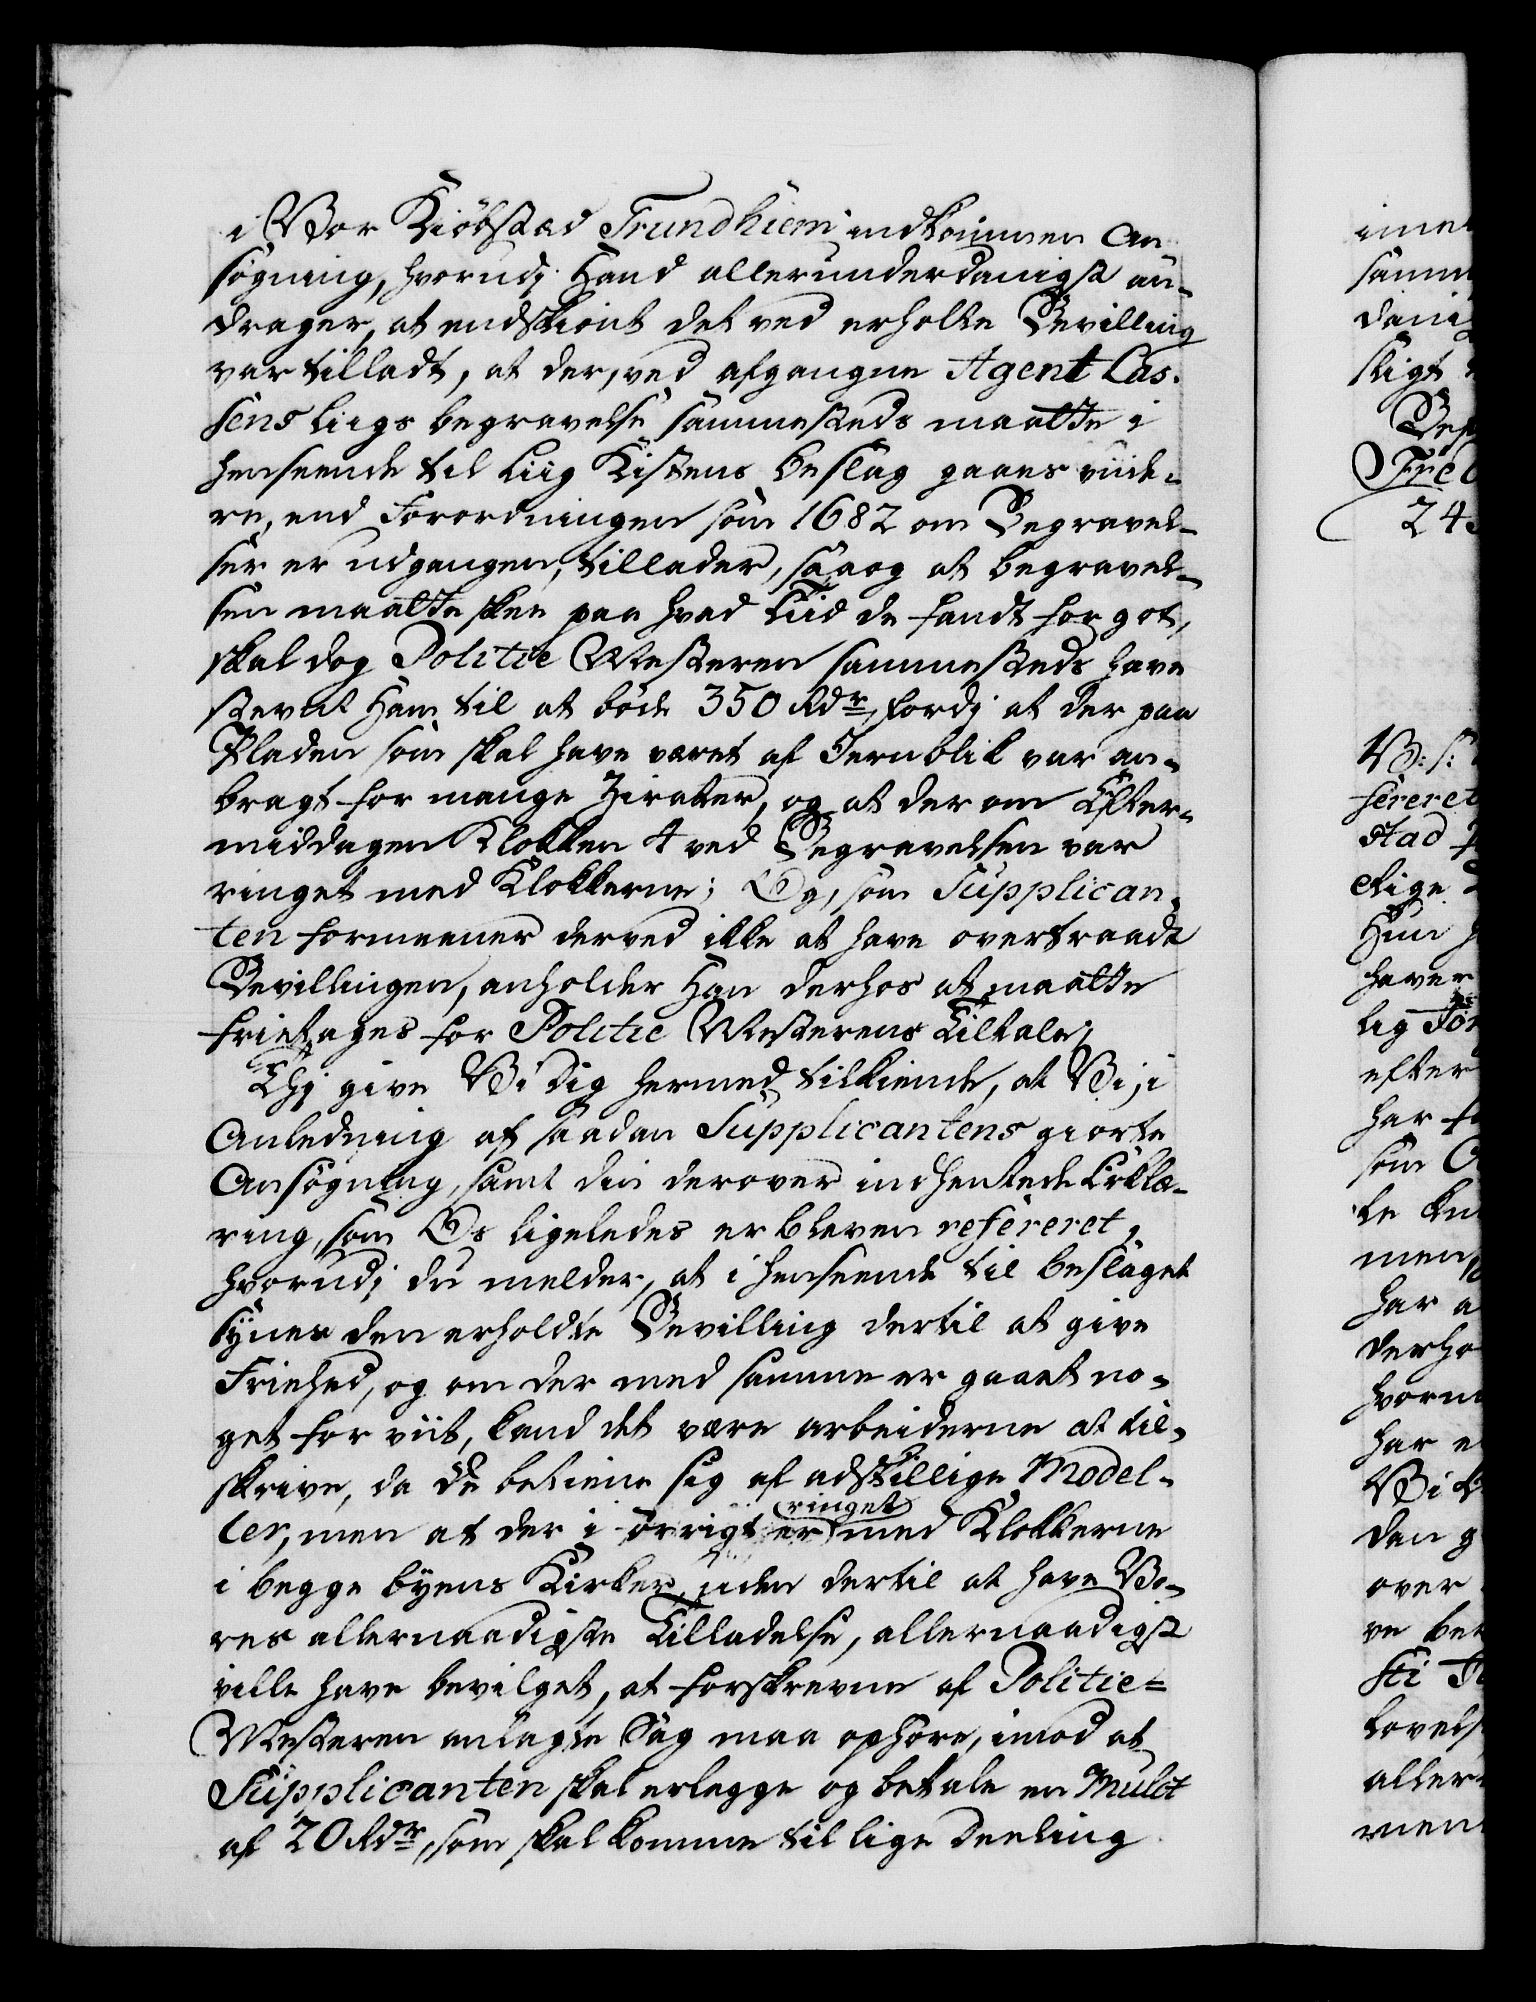 i Vor Kiöbstæd Trundhiem indkommen An
søgning, hvorudj Hand allerunderdanigst an-
drager, at endskiönt det ved erholte Bevilling
var tilladt, at der, ved afgangne Agent Las-
sens Liigs begravelse sammesteds maatte i
henseende til Liig Kistens beslag gaaes viide-
re, end Forordningen som 1682 om Begravel-
ser er udgangen, tillader, saa og at begravel-
sen maatte skee paa hvad Tiid de fandt for got,
skal dog Politie Mesteren sammesteds have
stevnt Ham til at böde 350 Rdr, fordj at der paa
Pladen som skal have været af Jernblik var an-
bragt for mange Zirater, og at der om Efter-
middagen Klokken 4 ved Begravelsen var
ringet med Klokkerne; Og, som Supplican-
ten formeener derved ikke at have overtraadt
Bevillingen, anholder Han derhos at maatte
frietages for Politie Mesterens Tiltale;
Thj give Vi dig hermed tilkiende, at Vi, i
Anledning af saadan Supplicantens giorte
Ansøgning, samt din derover indhentede Erklæ-
ring, som Os ligeledes er bleven refereret,
hvorudj du melder, at i henseende til beslaget
synes den erholdte Bevilling dertil at give
Friehed, og om der med samme er gaaet no-
get for viit, kand det være arbeiderne at til-
skrive, da de betiene sig af adskillige Model-
ler, men at der i övrigt er ringet med Klokkerne
i begge byens Kirker, uden dertil at have Vo-
res allernaadigste Tilladelse, allernaadigst
ville have bevilget, at forskrevne af Politie-
Mesteren anlagte Sag maa ophöre, imod at
Supplicanten skal erlegge og betale en Mulct
af 20 Rdr, som skal komme til lige Deeling